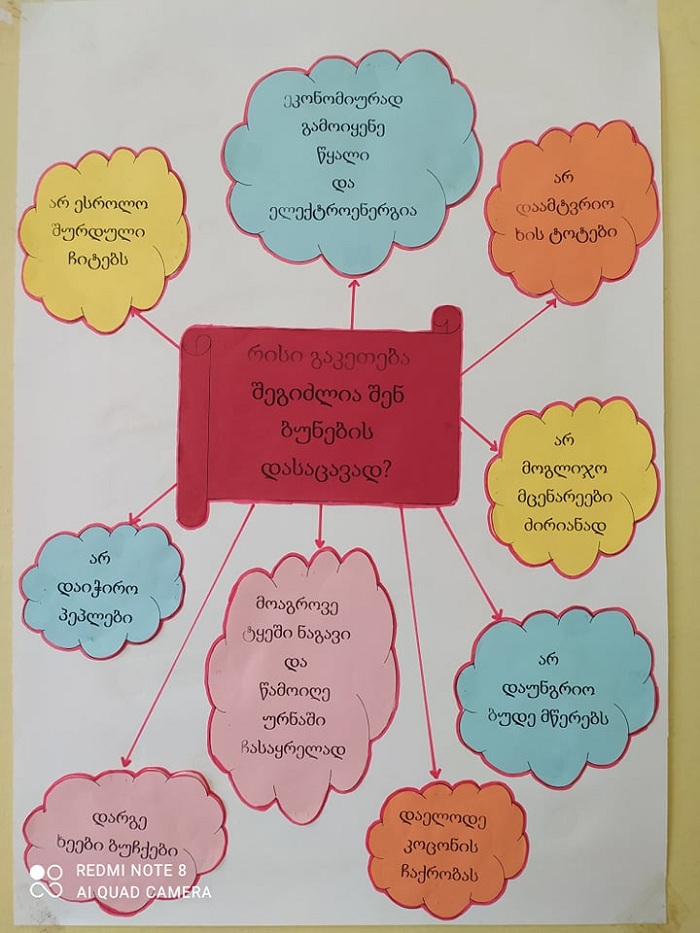 ეკონომიურად
გამოიყენე
წყალი
და
ელექტროენერგია
არ ესროლო
შურდული
ჩიტებს
არ
დაამტვრიო
ხის ტოტები
რისი გაკეთება
შეგიძლია შენ
ბუნების
დასაცავად?
არ
მოგლიჯო
მცენარეები
ძირიანად
არ
დაიჭირო
პეპლები
მოაგროვე
ტყეში ნაგავი
და
წამოიღე
ურნაში
ჩასაყრელად
არ
დაუნგრიო
ბუდე მწერებს
დარგე
ხეები ბუჩქები
დაელოდე
კოცონის
ჩაქრობას
REDMI NOTE 8
AI QUAD CAMERA